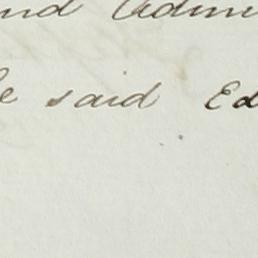 and Admi
he said Ed